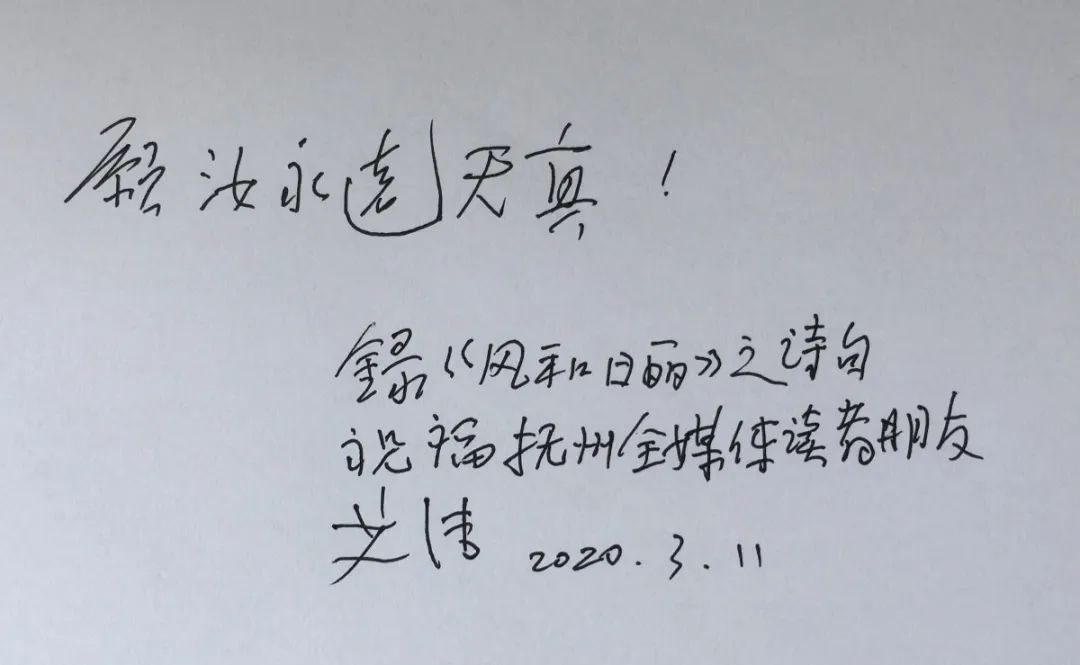 願汝永远天真！
録《风和日丽》之诗句
祝福抚州全媒体读者朋友
艾伟 2020.3.11